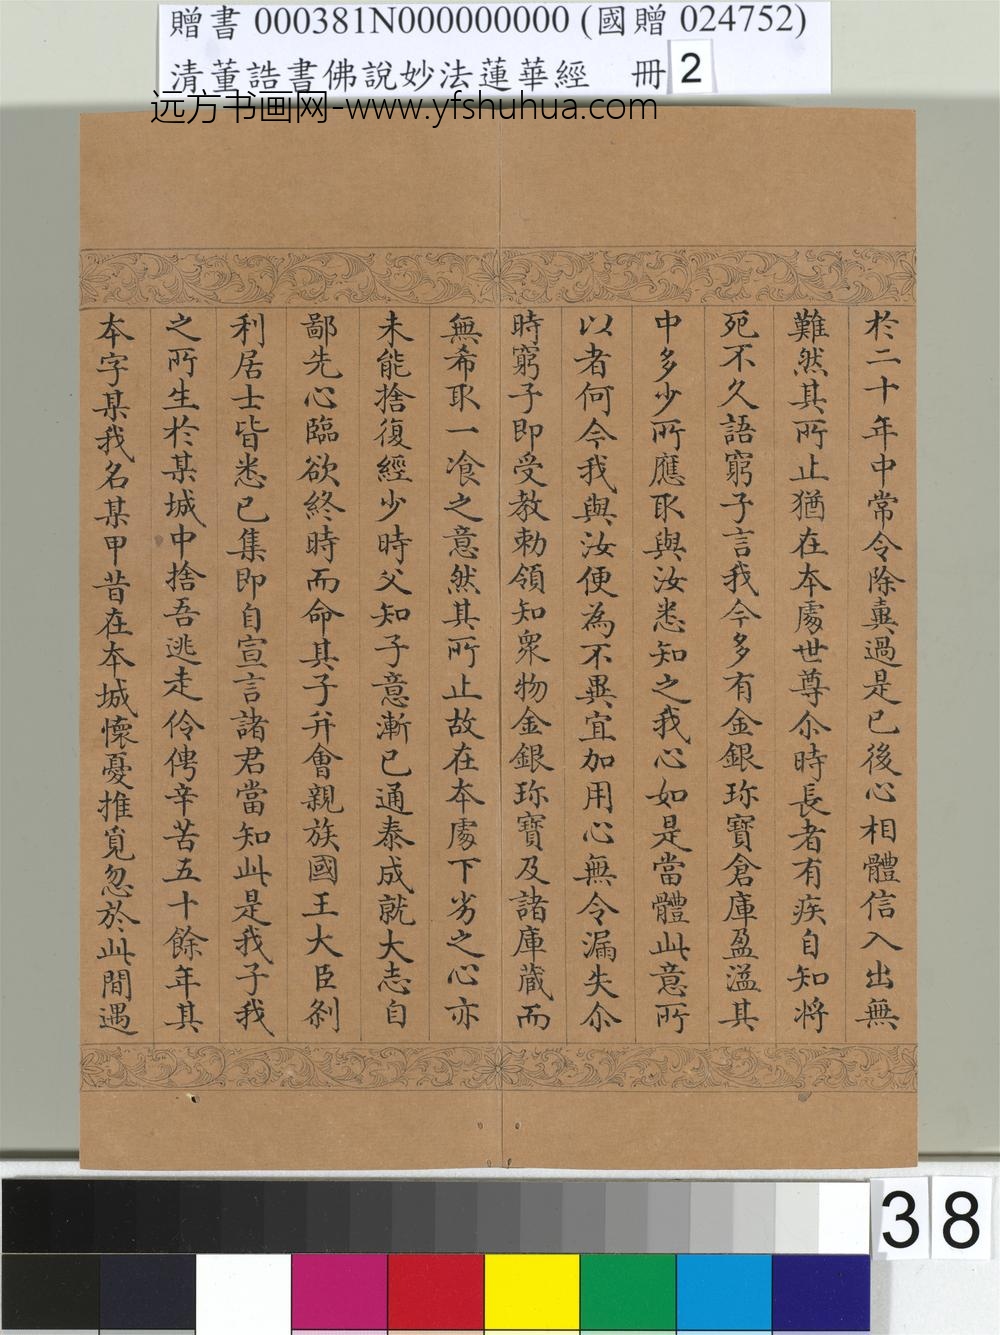 贈書 000381N000000000 (國贈 024752)
清董誥書佛說妙法蓮華經 冊 2
远方书画网-www.yfshuhua.com
於二十年中常令除糞過是已後心相體信入出無
難然其所止猶在本處世尊尒時長者有疾自知將
死不久語窮子言我今多有金銀珎寶倉庫盈溢其
中多少所應取與汝悉知之我心如是當體此意所
以者何今我與汝便為不異宜加用心無令漏失尒
時窮子即受教勑領知衆物金銀珎寶及諸庫藏而
無希取一飡之意然其所止故在本處下劣之心亦
未能捨復經少時父知子意漸已通泰成就大志自
鄙先心臨欲終時而命其子并會親族國王大臣剎
利居士皆悉已集即自宣言諸君當知此是我子我
之所生於某城中捨吾逃走伶俜辛苦五十餘年其
本字某我名某甲昔在本城懷憂推覓忽於此間遇
38